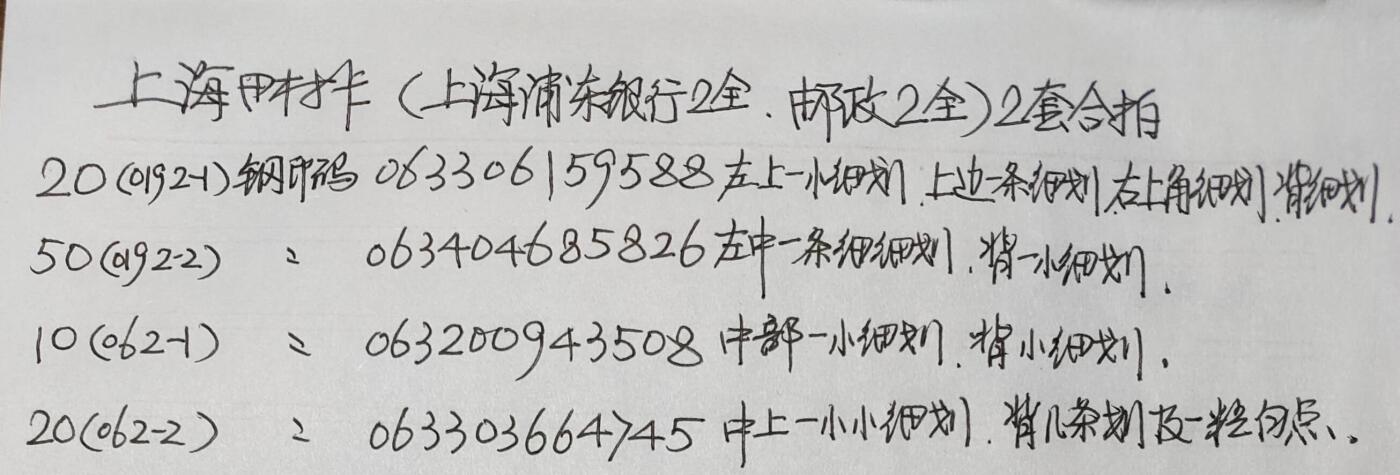 上海田村卡（上海浦东银行2全.邮政2全）2套合拍
20(0192-1)钢印码 063306159588左上一小细划.上边一条细划.右上角细划.背细划.
50(0192-2) 〃 063404685826左中一条细细划.背一小细划.
10(062-1) 〃 063200943508中部一小细划.背小细划.
20(062-2) 〃 063303664745中上一小小细划.背几条划及一粒白点.